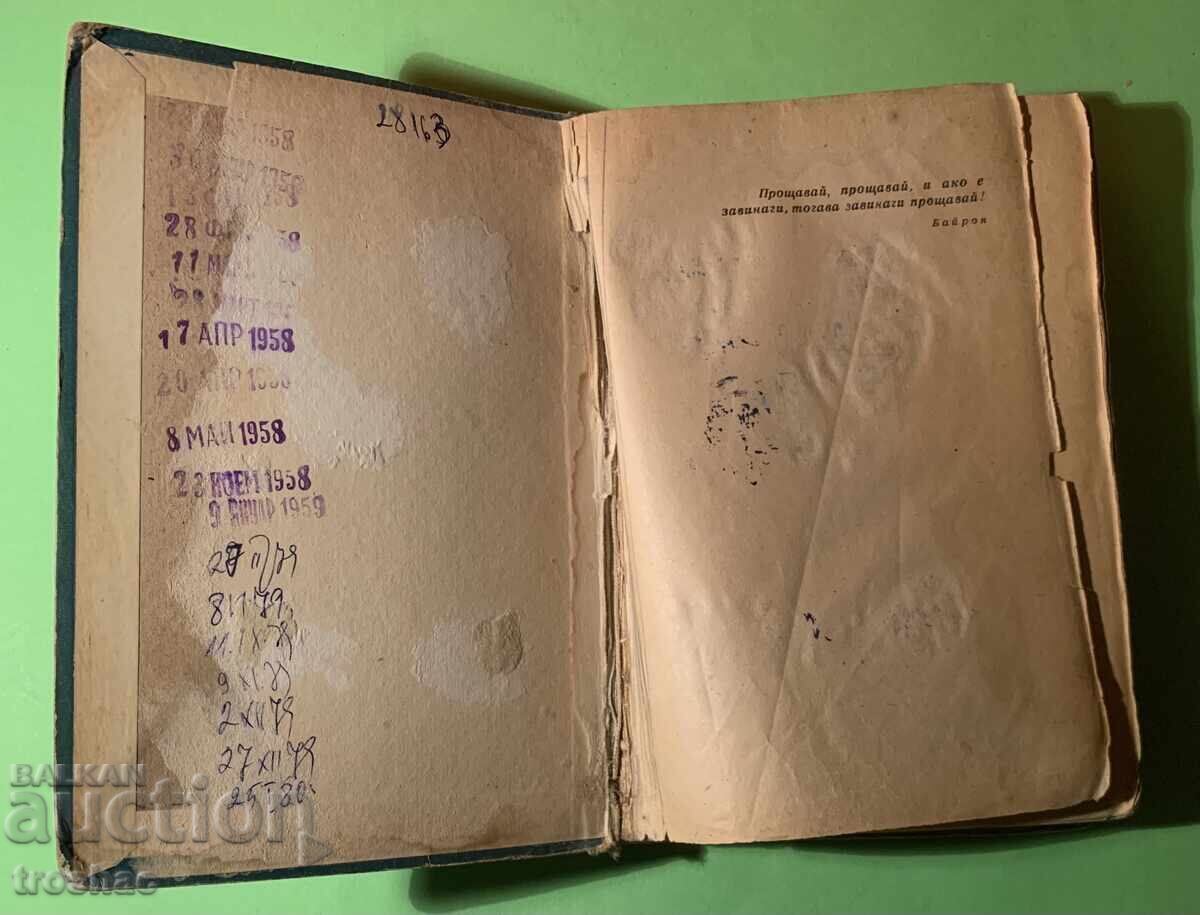 28163
1958
1958
28 ФЕВ 1958
11 МАРТ
МАРТ 195
17 АПР 1958
20 АПР 1958
8 МАЙ 1958
23 НОЕМ 1958
9 ЯНУАР 1959
27 II 79
8 II 79
11. IX 79
9 XI 79
2 XII 79
27 XII 79
25 I 80
Прощавай, прощавай, и ако е
завинаги, тогава завинаги прощавай!
Байрон
BALKAN
auction
troshac